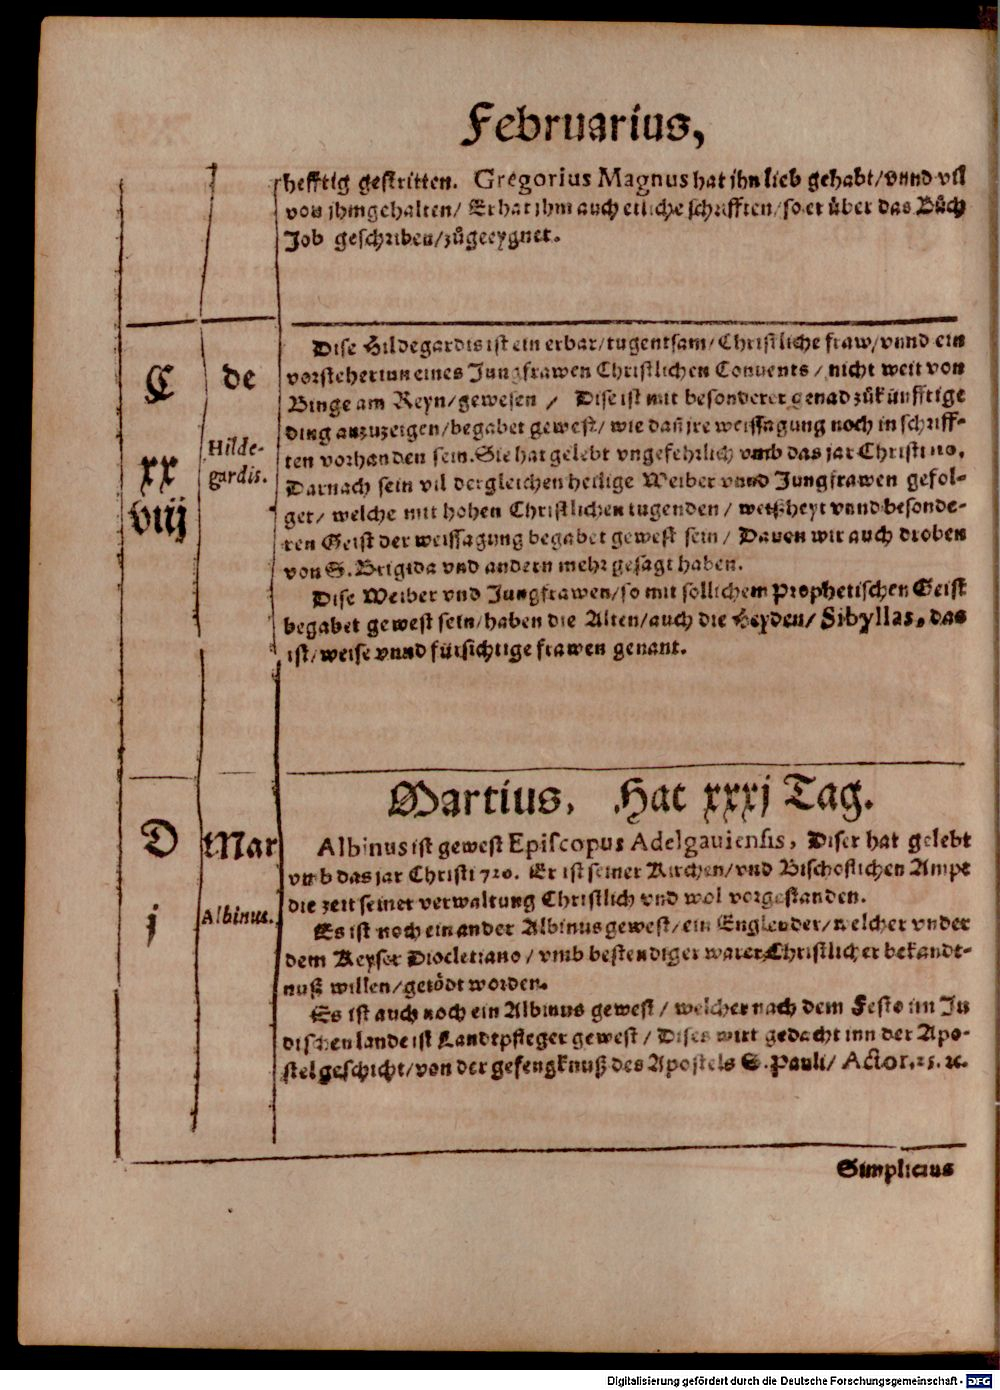 Februarius,
hefftig gestritten. Gregorius Magnus hat ihn lieb gehabt/ vnnd vil
von jhm gehalten/ Er hat ihm auch etliche schrifften/ so er über das Bůch
Job geschriben/ zůgeeygnet.
C de
Dise Hildegardis ist ein erbar/ tugentsam/ Christliche fraw/ vnnd ein
vorsteherinn eines Jungfrawen Christlichen Conuents/ nicht weit von
Binge am Reyn/ gewesen/ Dise ist mit besonderer genad zůkünfftige
ding anzuzeigen/ begabet gewest/ wie dañ jre weissagung noch in schriff-
ten vorhanden sein. Sie hat gelebt vngefehrlich vmb das jar Christi
Darnach sein vil dergleichen heilige Weiber vnnd Jungfrawen gefol-
get/ welche mit hohen Christlichen tugenden/ weißheyt vnnd besonde-
ren Geist der weissagung begabet gewest sein/ Dauon wir auch droben
von S. Brigida vnd andern mehr gesagt haben.
Dise Weiber vnd Jungfrawen/ so mit sollichem Prophetischen Geist
begabet gewest sein/ haben die Alten/ auch die Heyden/ Sibyllas, das
ist/ weise vnnd fürsichtige frawen genant.
xx
viij
Hilde-
gardis.
Martius, Hat xxxj Tag.
D Mar
j
Albinus.
Albinus ist gewest Episcopus Adelgauiensis, Diser hat gelebt
vmb das jar Christi 720. Er ist seiner Kirchen/ vnd Bischoflichen Ampt
die zeit seiner verwaltung Christlich vnd wol vorgestanden.
Es ist noch ein ander Albinus gewest/ ein Englender/ welcher vnder
dem Keyser Diocletiano/ vmb bestendiger warer Christlicher bekandt-
nuß willen/ getödt worden.
Es ist auch noch ein Albinus gewest/ welcher nach dem Festo im Jü
dischen lande ist Landtpfleger gewest/ Dises wirt gedacht inn der Apo-
stelgeschicht/ von der gefengknuß des Apostels S. Pauli/ Actor. 25. 2c.
Simplicius
Digitalisierung gefördert durch die Deutsche Forschungsgemeinschaft - DFG